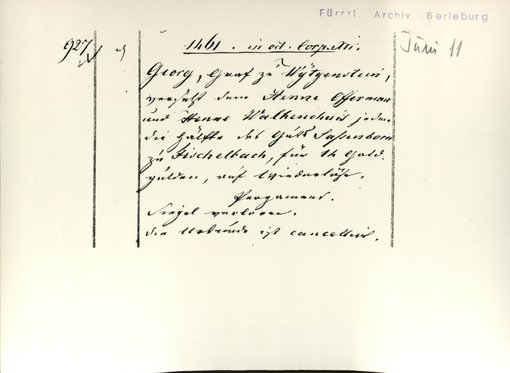 Fürstl. Archiv Berleburg
927
1461. in oct. Corp. Xti.
Juni 11
Georg, Graf zu Wytgenstein,
versetzt dem Henne Offerman
und Henne Walkenhuis jedem
die Hälfte des Guts Saßenborn
zu Fischelbach, für 14 Gold-
gulden, auf Wiederlöse.
Pergament.
Siegel verloren.
Die Urkunde ist cancellirt.